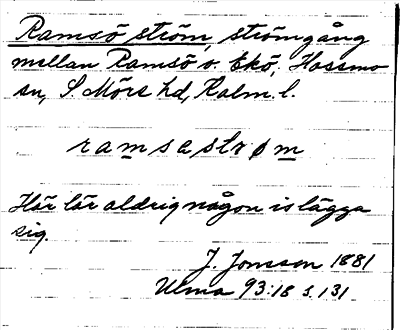 Ramsö ström, strömgång
mellan Ramsö o. Ekö, Hossmo
sn, S Möre hd, Kalm. l.
ramsastrøm
Här lär aldrig någon is lägga
sig.
J. Jonsson 1881
Ulma 93:18 s. 131